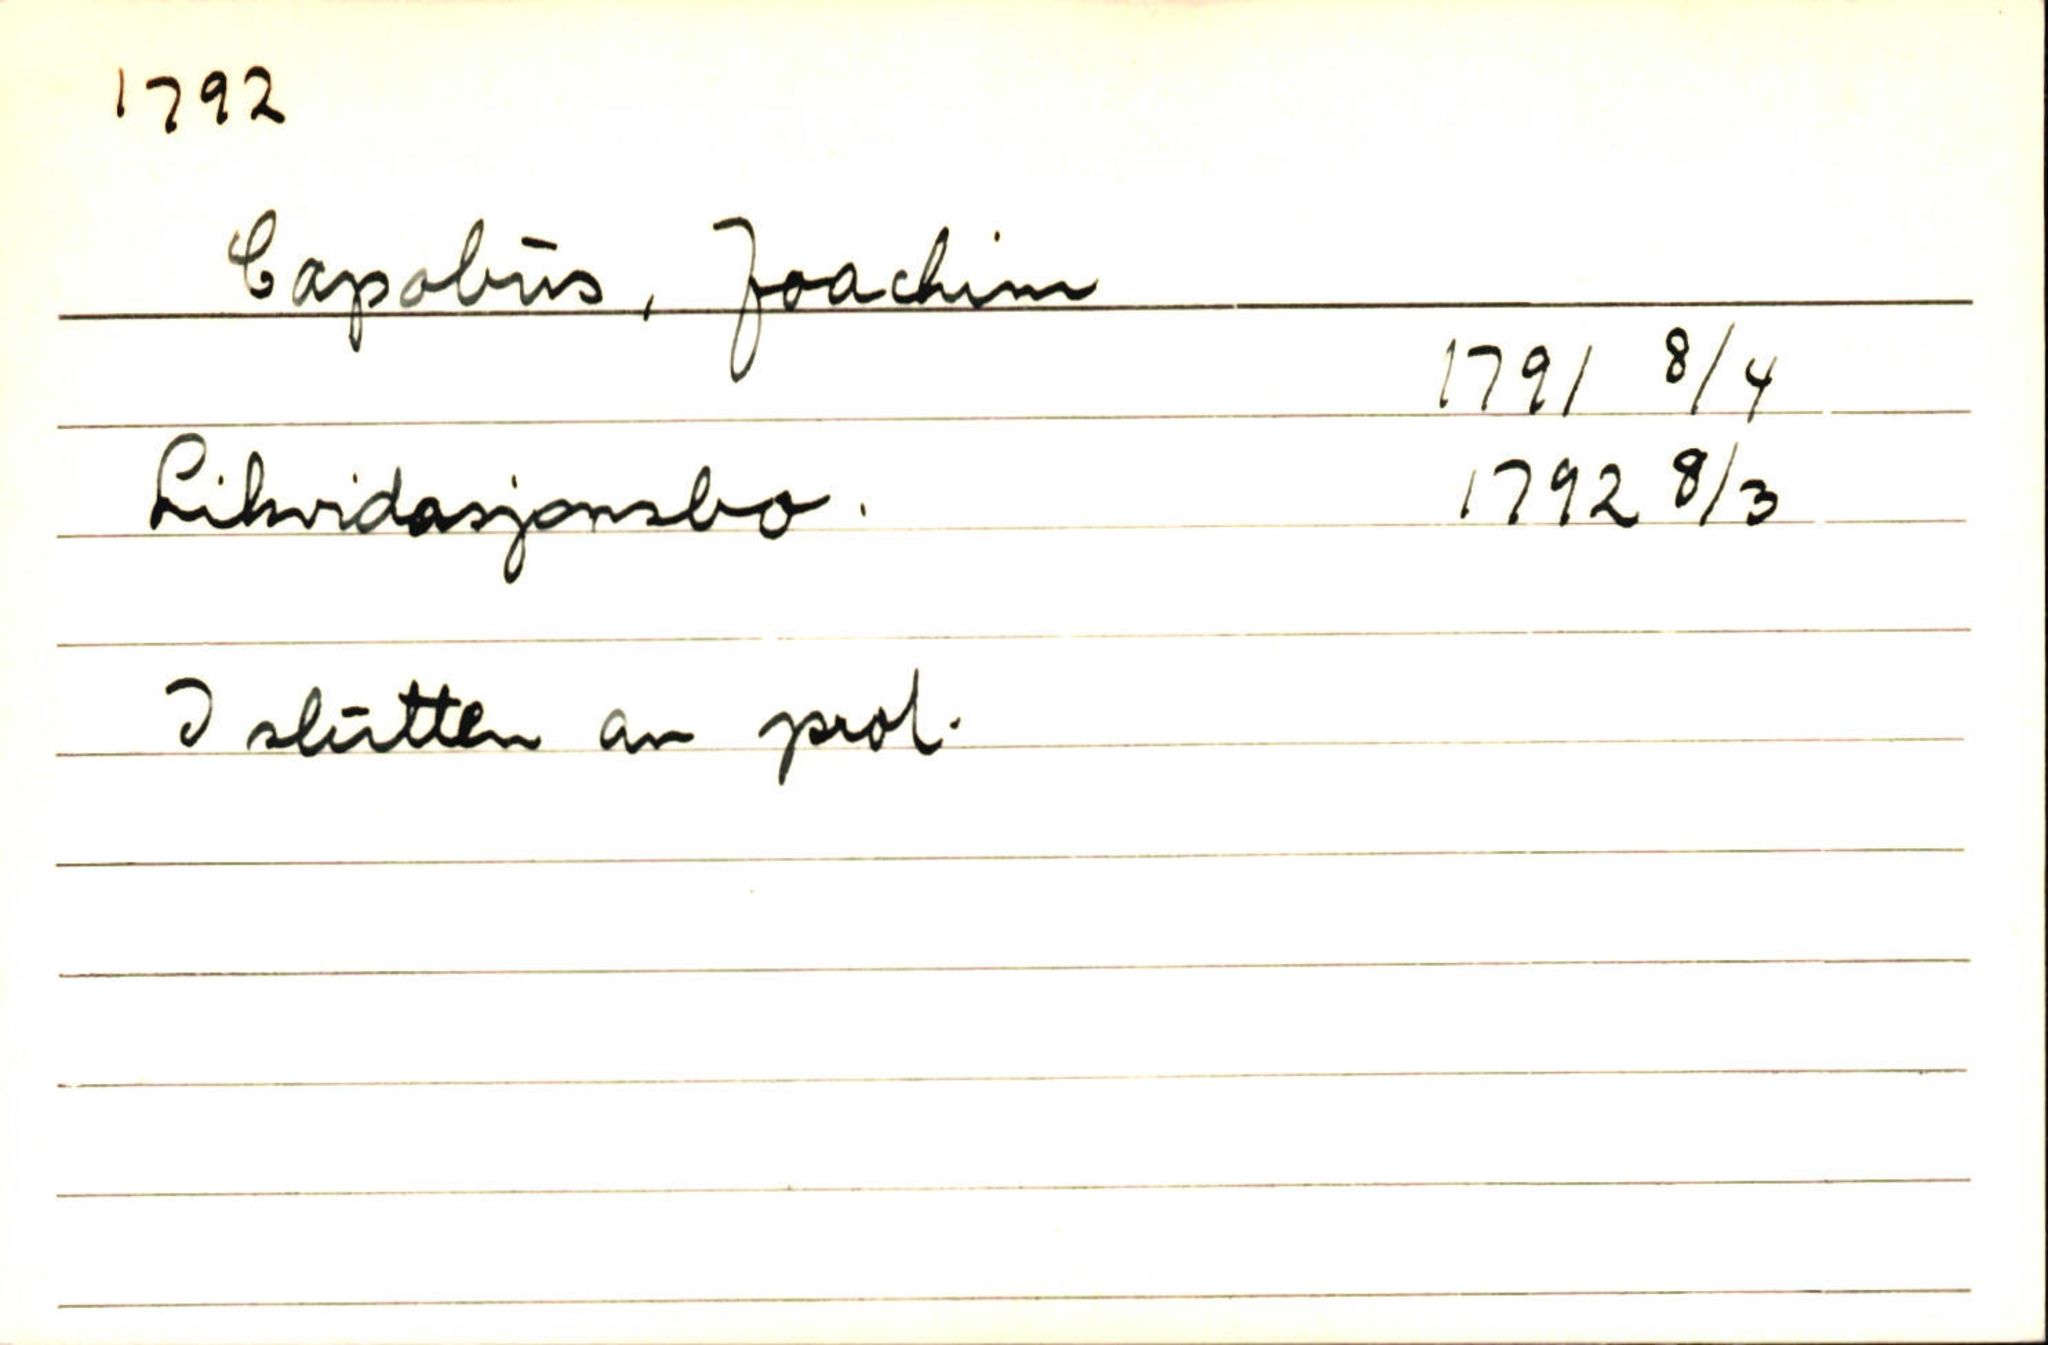 1792
Capobūs, Joachim
1791 8/4
Likvidasjonsbo. 1792 8/3
I slūtten av prot.